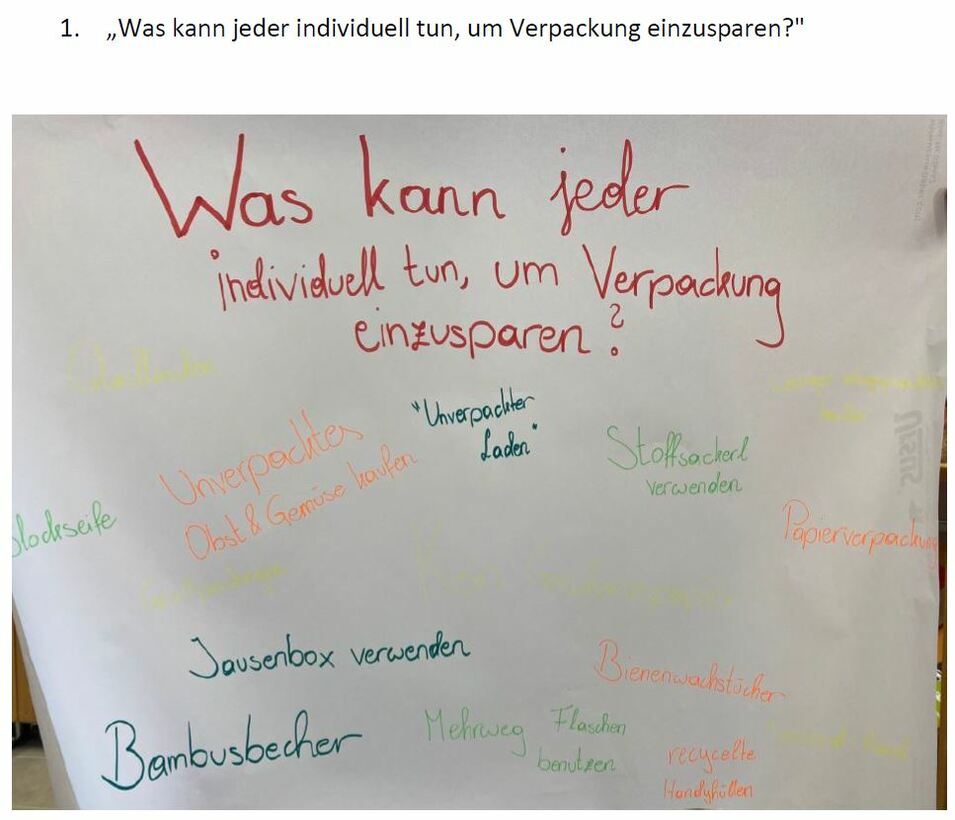 1. „Was kann jeder individuell tun, um Verpackung einzusparen?"
Was kann jeder
individuell tun, um Verpackung
einzusparen?
"Unverpackter
Laden"
Unverpacktes
Obst & Gemüse kaufen
Stoffsackerl
verwenden
Blockseife
Papierverpackung
Jausenbox verwenden
Bienenwachstücher
Bambusbecher
Mehrweg Flaschen
benutzen
recycelte
Handyhüllen